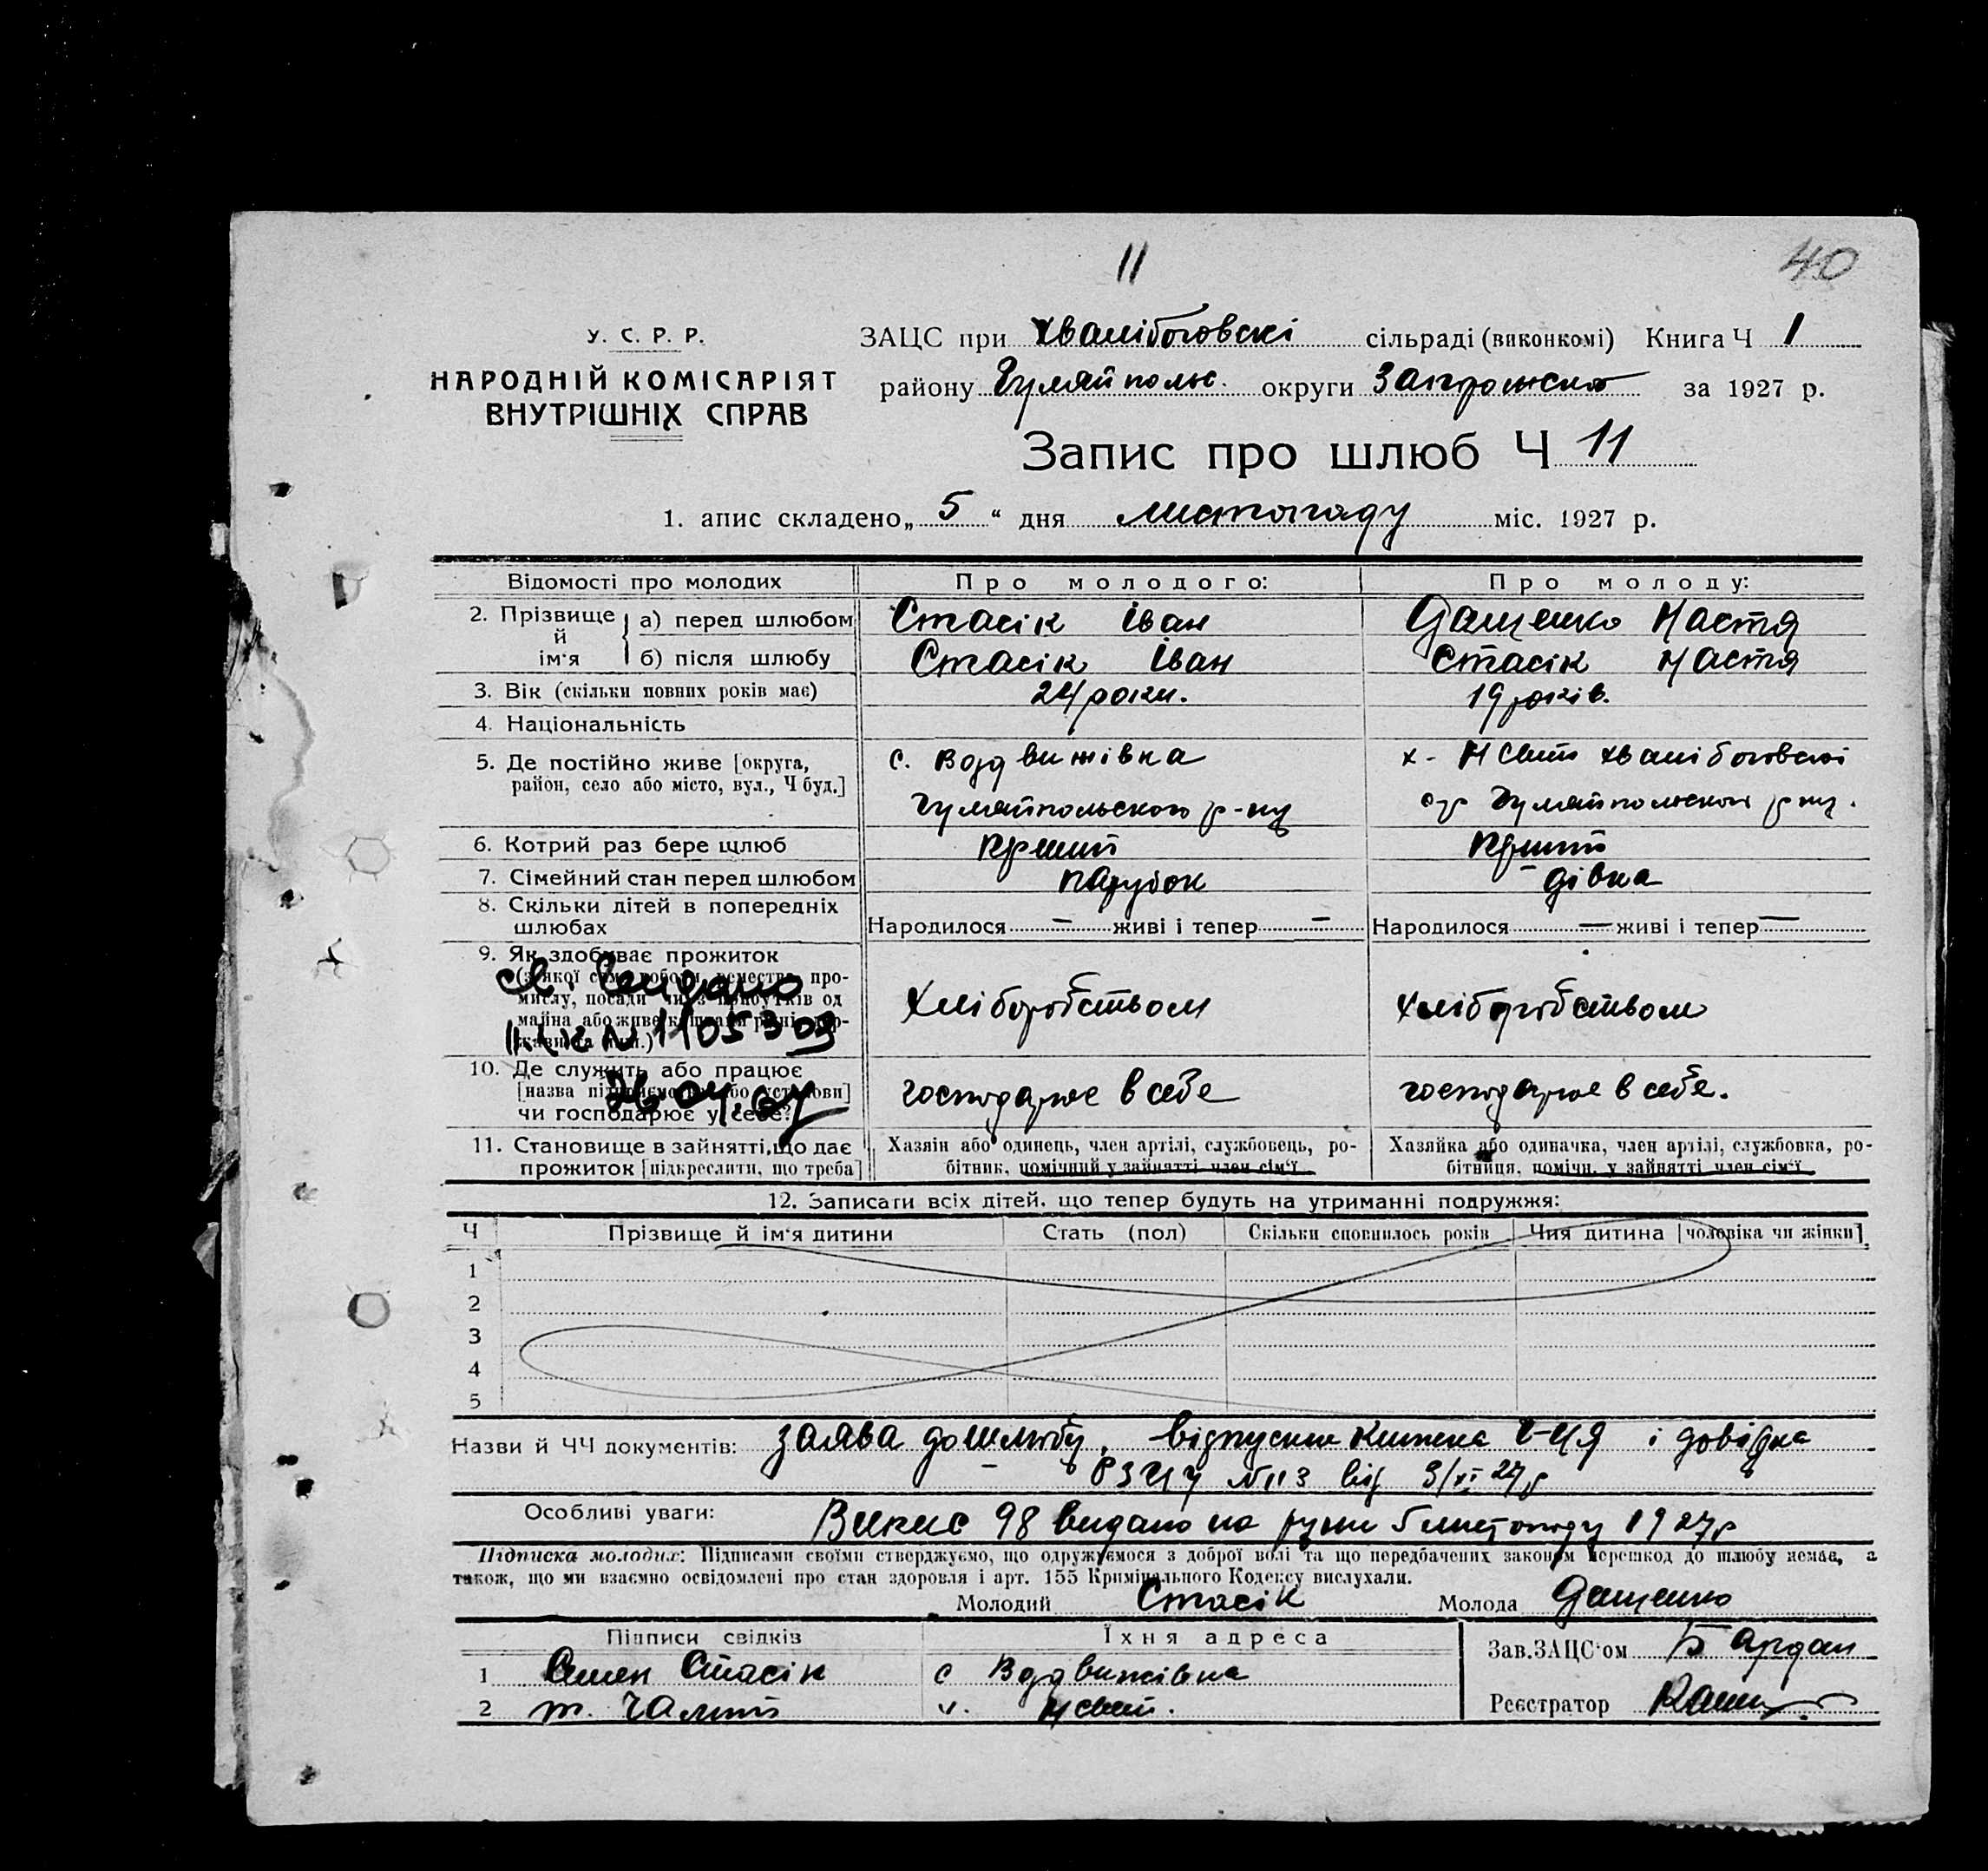 11
40
У. С. Р. Р.
НАРОДНІЙ КОМІСАРІЯТ
ВНУТРІШНІХ СПРАВ
ЗАЦС при Хвалібоговскі сільраді (виконкомі) Книга Ч 1
району Гуляйпольс. округи Запорожско за 1927 р.
Запис про шлюб Ч 11
1. апис складено „ 5 “ дня листопаду міс. 1927 р.
Відомості про молодих Про молодого: Про молоду:
2. Прізвище й ім'я а) перед шлюбом Стасік Іван Дащенко Настя
б) після шлюбу Стасік Іван Стасік Настя
3. Вік (скільки повних років має) 24 роки. 19 років.
4. Національність
5. Де постійно живе [округа, район, село або місто, вул., Ч буд.]
с. Воздвижівка
Гуляйпольского р-ну
х- Н Свит Хвалібоговскої
с/р Гуляйпольского р-ну.
6. Котрий раз бере шлюб перший перший
7. Сімейний стан перед шлюбом парубок дівка
8. Скільки дітей в попередніх шлюбах Народилося — живі і тепер — Народилося — живі і тепер —
9. Як здобуває прожиток
Хліборобством Хліборобством
св. видано
N 1105309
26.04.67
10. Де служить або працює
[назва підприємства або установи]
чи господарює у себе?
господарює в себе господарює в себе.
11. Становище в зайнятті, що дає прожиток [підкреслити, що треба]
Хазяін або одинець, член артілі, службовець, робітник, помічний у зайнятті член сім'ї
Хазяйка або одиначка, член артілі, службовка, робітниця, помічн. у зайнятті член сім'ї
12. Записати всіх дітей, що тепер будуть на утриманні подружжя:
Ч Прізвище й ім'я дитини Стать (пол) Скільки сповнилось років Чия дитина [чоловіка чи жінки]
1
2
3
4
5
Назви й ЧЧ документів: заява до шлюбу, відпускна книжка і довідка
N 113 від 3/XI 27р
Особливі уваги: Випис 98 видано на руки 5 листопаду 1927р
Підписка молодих: Підписами своїми стверджуємо, що одружуємося з доброї волі та що передбачених законом перешкод до шлюбу немає, а
також, що ми взаємно освідомлені про стан здоровля і арт. 155 Кримінального Кодексу вислухали.
Молодий Стасік Молода Дащенко
Підписи свідків Їхня адреса
1 Семен Стасік с Воздвижівка
2 х. Н свит.
Зав. ЗАЦС'ом Бардан
Реєстратор